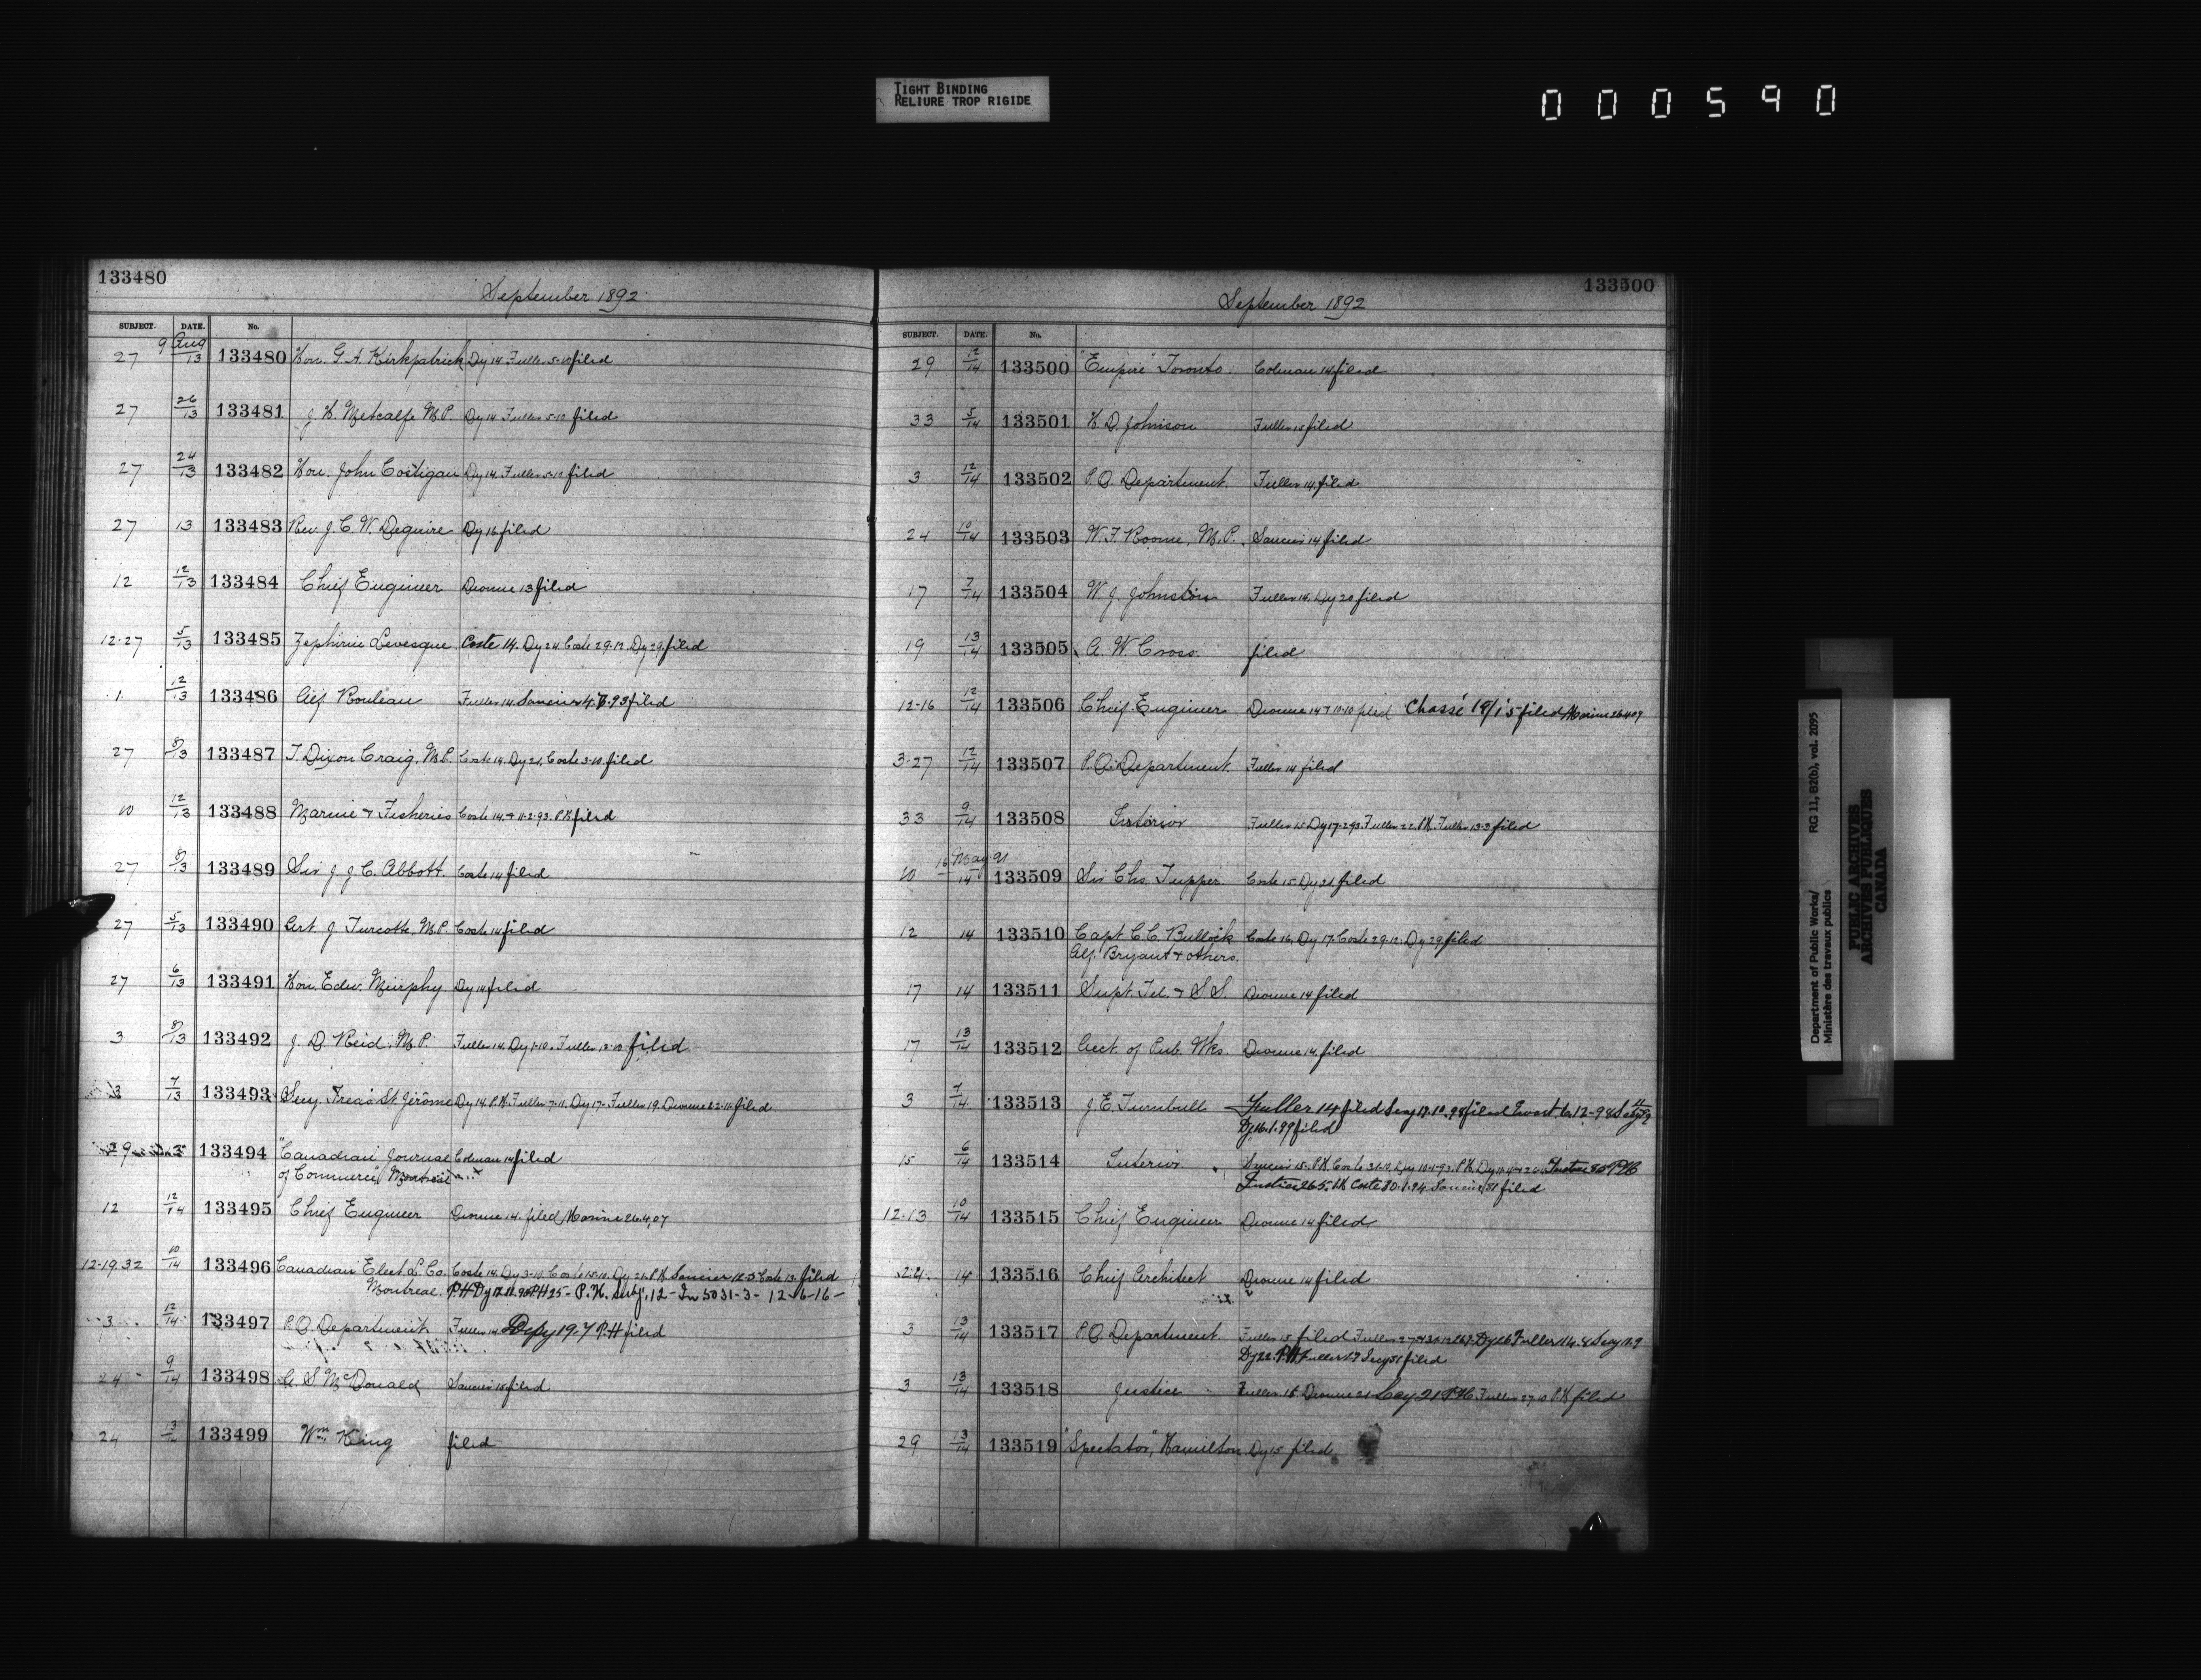 TIGHT BINDING
RELIURE TROP RIGIDE
000590
133480
September 1892
SUBJECT. DATE. No.
27 9 Aug/13 133480 Hon. G. A. Kirkpatrick Dy 14 Fuller 5-10 filed
27 26/13 133481 J. H. Metcalfe M.P. Dy 14 Fuller 5-10 filed
27 24/13 133482 Hon. John Costigan Dy 14. Fuller 5-10 filed
27 13 133483 Rev. J. C. W. Deguire Dy 16 filed
12 12/13 133484 Chief Engineer Dionne 13 filed
12-27 5/13 133485 Zephirin Levesque Coste 14. Dy 24 Coste 29-12. Dy 29. filed
1 12/13 133486 Alf Rouleau Fuller 14. filed
27 8/13 133487 T. Dixon Craig, M.P. Coste 14. Dy 21. Coste 3-10. filed
10 12/13 133488 Marine & Fisheries Coste 14. & 11-2-93. P.H. filed
27 8/13 133489 Sir J. J. C. Abbott. Coste 14 filed
27 5/13 133490 Art. J. Turcotte, M.P. Coste 14 filed
27 6/13 133491 Hon. Edw. Murphy Dy 14 filed
3 8/13 133492 J. D. Reid. M.P. Fuller 14. Dy 1-10. Fuller 13-10 filed
3 7/13 133493 Secy. Treas St. Jérôme Dy 14. P.H. Fuller 7-11. Dy 17. Fuller 19. Dionne 22-11. filed
29 133494 "Canadian Journal Colman 14 filed
of Commerce," Montreal
12 12/14 133495 Chief Engineer Dionne 14. filed Marine 26.4.07
12-19.32 10/14 133496 Canadian Elect. L. Co. Coste 14. Dy 3-10. Coste 15-10. Dy 21. P.H. 12-3 Coste 13. filed
Montreal. P.H. 25- P.H. Subj. 12- In 5031-3- 12-6-16-
3 12/14 133497 P.O. Department Fuller 14 Depy 19.7 P.H filed
24 9/14 133498 A. S. McDonald filed
24 13/14 133499 Wm King filed
133500
September 1892
SUBJECT. DATE. No.
29 12/14 133500 "Empire" Toronto. Colman 14 filed
33 5/14 133501 H. D. Johnson Fuller 15 filed
3 12/14 133502 P.O. Department. Fuller 14. filed
24 10/14 133503 W. F. Roome, M.P. 14 filed
17 7/14 133504 W. J. Johnston Fuller 14. Dy 20 filed
19 13/14 133505 A. W. Cross. filed
12-16 12/14 133506 Chief Engineer Dionne 14 & 10-10 filed Chassé 19/1 '5 filed Marine 26407
3-27 12/14 133507 P.O. Department. Fuller 14 filed
33 9/14 133508 Interior Fuller 15 Dy 17-2-93. Fuller 22. P.H. Fuller 13-3 filed
10 16 May 91/14 133509 Sir Chs. Tupper. Coste 15 Dy 21 filed
12 14 133510 Capt. C. C. Bullock Coste 16. Dy 17. Coste 29-12. Dy 29 filed
Alf. Bryant & others.
17 14 133511 Supt. Tel. & S.S. Dionne 14 filed
17 13/14 133512 Acct. of Pub. Wks. Dionne 14. filed
3 7/14 133513 J. E. Turnbull Fuller 14 filed Secy 17.10.98 filed
Dy 16.1.99 filed
15 6/14 133514 Interior 15. P.H. Coste 31-10. Dy 10-1-93. P.H. P.H.
Coste 30.1.94 filed
12-13 10/14 133515 Chief Engineer Dionne 14 filed
24 14 133516 Chief Architect Dionne 14 filed
3 13/14 133517 P.O. Department. Fuller 15 filed
Dy 22. P.H. Fuller 27 filed
3 13/14 133518 Justice Fuller 15 Dionne 21 Secy 21 P.H. Fuller 27-10 P.H. filed
29 13/14 133519 "Spectator," Hamilton. Dy 15 filed.
Department of Public Works/
Ministère des travaux publics
RG 11, B2(b), vol. 2095
PUBLIC ARCHIVES
ARCHIVES PUBLIQUES
CANADA